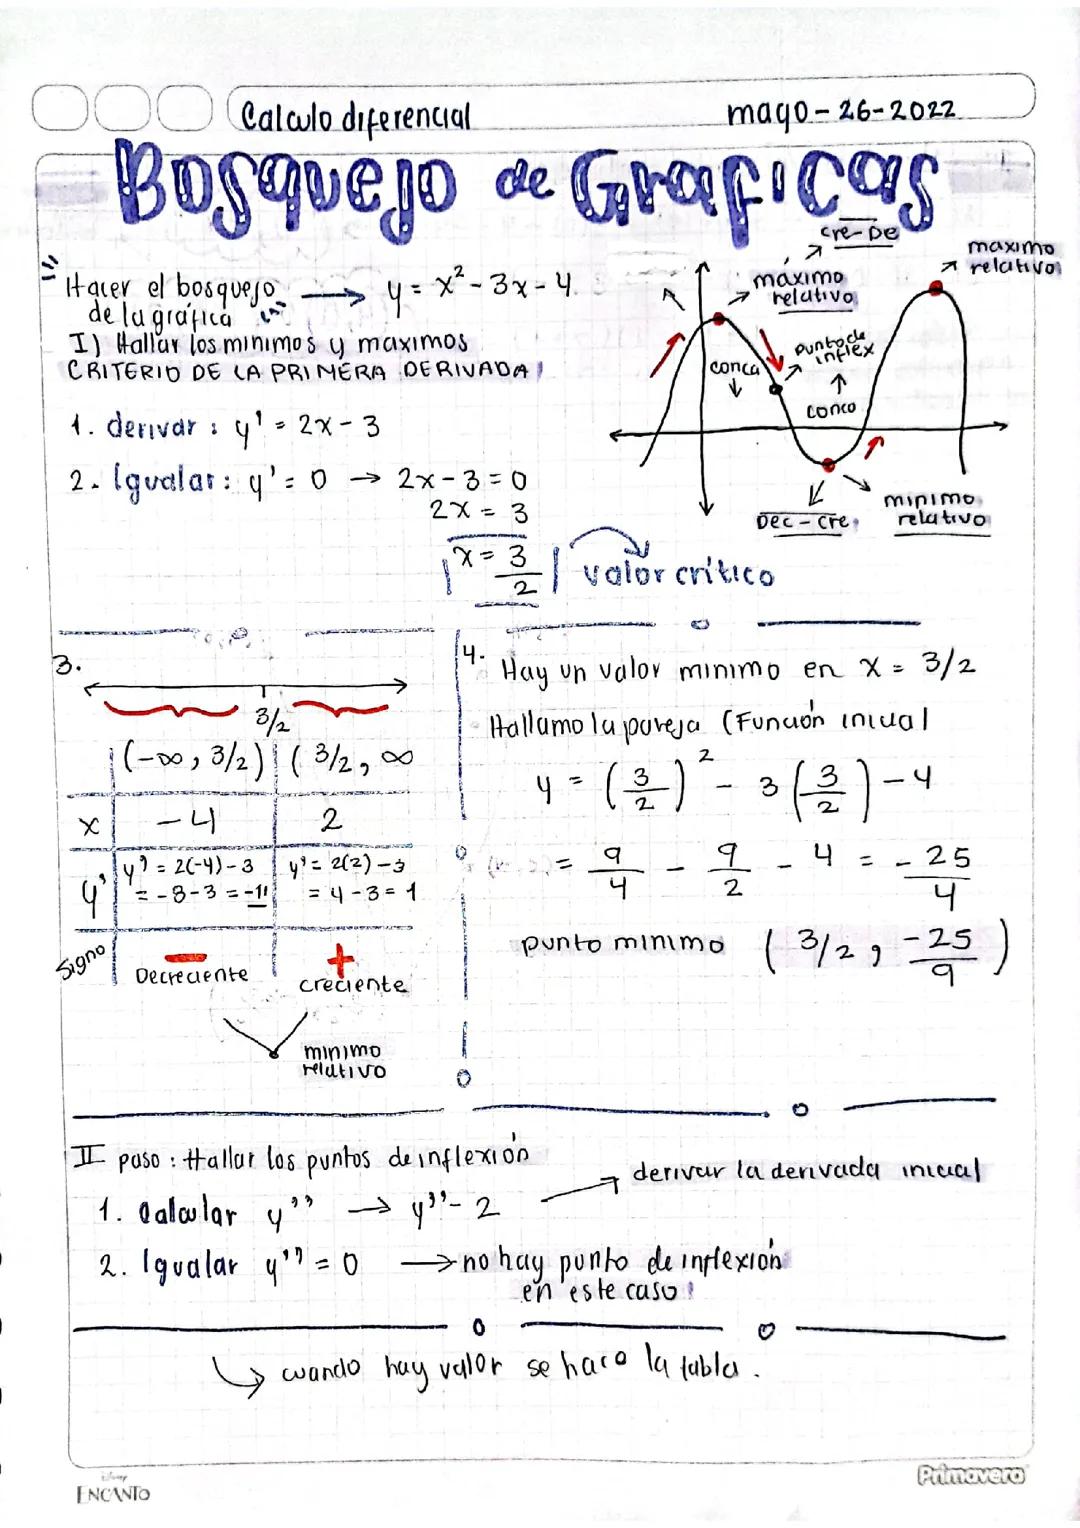 Calculo diferencial
mayo-26-2022
Bosquejo de Graficas
Hacer el bosquejo de la gráfica → y = x² - 3x - 4
I) Hallar los minimos y maximos
CRITERIO DE LA PRIMERA DERIVADA
1. derivar: y' = 2x - 3
2. Igualar: y' = 0 → 2x - 3 = 0
2x = 3
x = 3/2 valor crítico
cre-De
máximo relativo
maximo relativo
conca ↓
punto de inflex
conca ↑
Dec-cre
minimo relativo
3.
3/2
(-∞, 3/2) | (3/2, ∞
x | -4 | 2
y' | y' = 2(-4)-3 | y' = 2(2)-3
= -8-3 = -11 | = 4-3 = 1
signo | - Decreciente | + creciente
minimo relativo
4. Hay un valor minimo en x = 3/2
Hallamo la pareja (Función inicial
y = (3/2)² - 3(3/2) - 4
= 9/4 - 9/2 - 4 = -25/4
punto minimo (3/2, -25/9)
II paso: Hallar los puntos de inflexión
1. Calcular y'' → y''- 2 → derivar la derivada inicial
2. Igualar y'' = 0 → no hay punto de inflexión
en este caso
↳ cuando hay valor se hace la tabla.
Disney
ENCANTO
Primavera